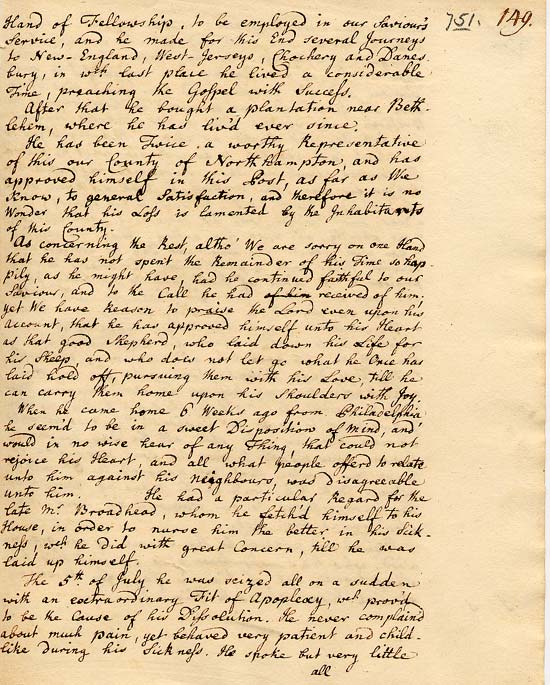 751. 149.
Hand of Fellowship, to be employed in our Saviour's
Service, and he made for this End several Journeys
to New-England, West-Jerseys, Chochery and Danes
bury, in wch last place he lived a considerable
Time, preaching the Gospel with Success.
After that he bought a plantation near Beth-
lehem, where he has liv'd ever since.
He has been Twice a worthy Representative
of this our County of Northhampton, and has
approved himself in this Post, as far as We
Know, to general Satisfaction, and therefore it is no
Wonder that his Loss is lamented by the Inhabitants
of this County.
As concerning the Rest, altho' We are sorry on one Hand
that he has not spent the Remainder of his Time so hap
pily, as he might have, had he continued faithful to our
Saviour, and to the Call he had of him received of him;
yet We have Reason to praise the Lord even upon his
Account, that he has approved himself unto his Heart
as that good Shepherd, who laid down his Life for
his Sheep, and who does not let go what he Once has
laid hold off, pursuing them with his Love, till he
can carry them home upon his Shoulders with Joy.
When he came home 6 Weeks ago from Philadelphia
he seem'd to be in a sweet Disposition of Mind, and
would in no wise hear of any Thing, that could not
rejoice his Heart, and all what people offerd to relate
unto him against his Neighbours, was disagreeable
unto him. He had a particular Regard for the
late Mr. Broadhead, whom he fetch'd himself to his
House, in order to nurse him the better in his Sick-
ness, wch he did with great Concern, till he was
laid up himself.
The 5th of July he was seized all on a sudden
with an extraordinary Fit of Apoplexy, wch prov'd
to be the Cause of his Dissolution. He never complaind
about much pain, yet behaved very patient and child-
like during his Sickness. He spoke but very little
all